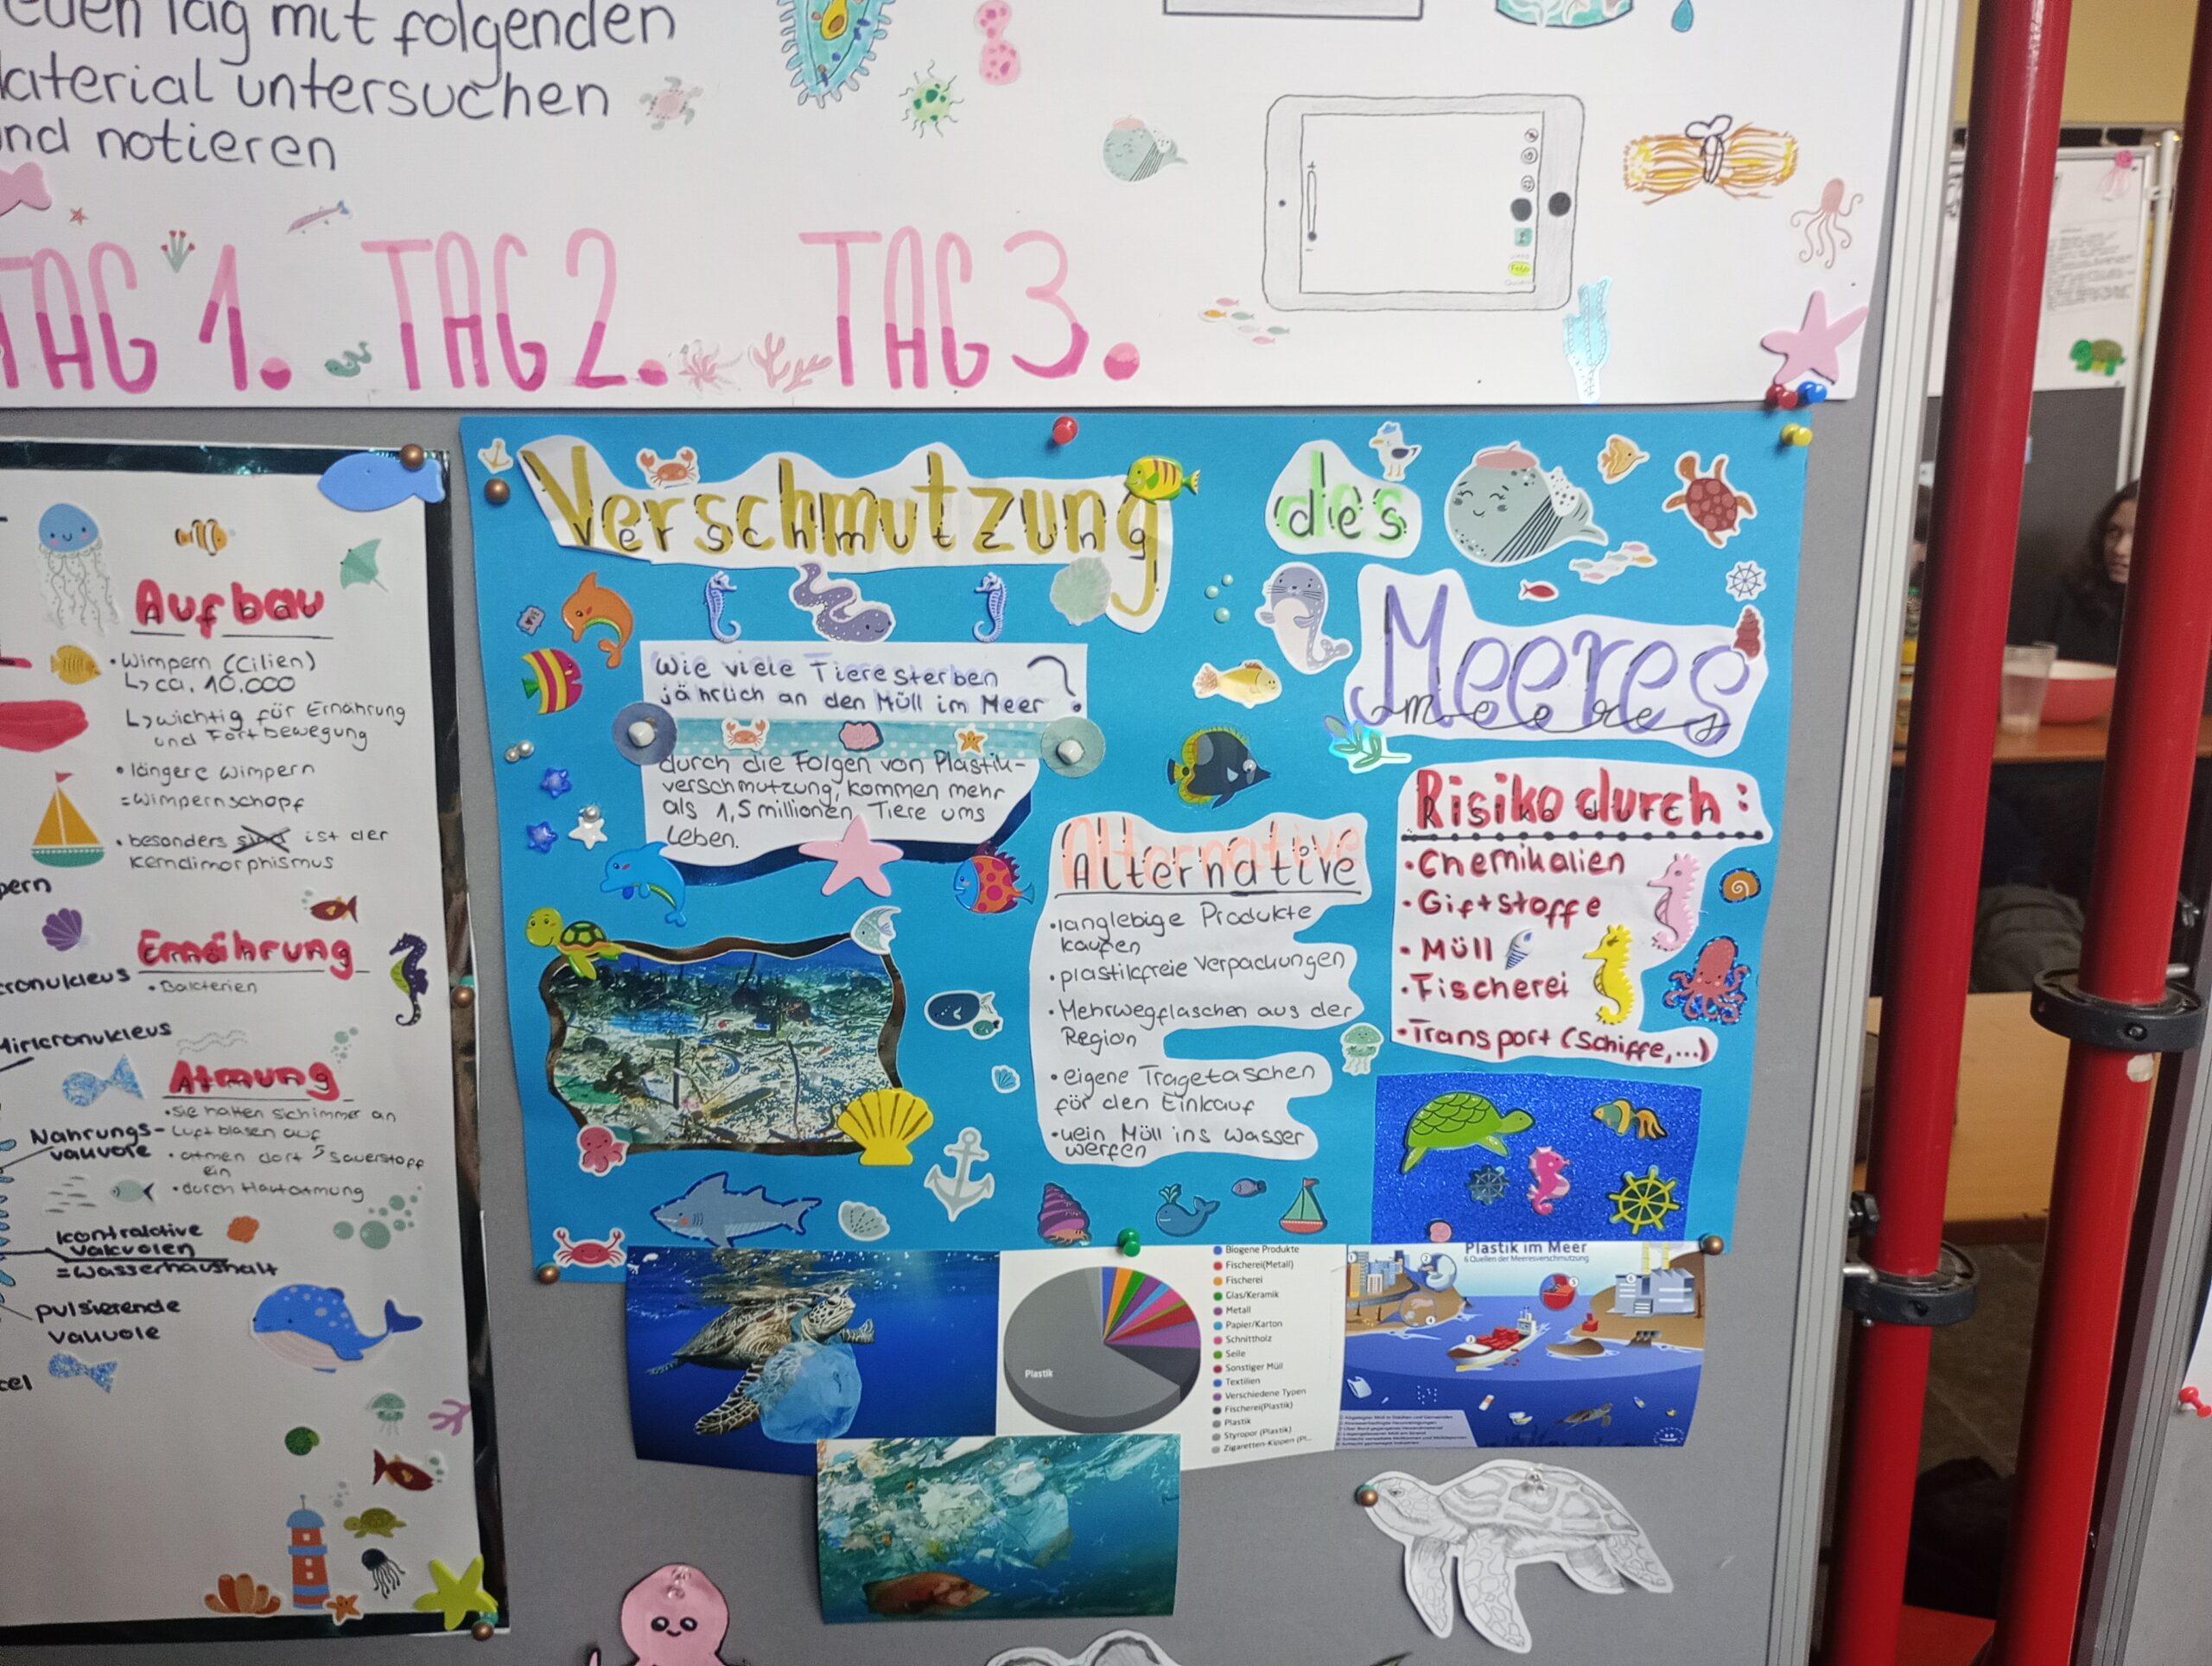 Tag mit folgenden
untersuchen
notieren
TAG 1. TAG 2. TAG 3.
Aufbau
• Wimpern (Cilien)
↳ ca. 10.000
↳ wichtig für Ernährung
und Fortbewegung
• längere Wimpern
= Wimpernschopf
• besonders sind ist der
Kerndimorphismus
Ernährung
• Bakterien
Atmung
• sie halten sich immer an
Luftblasen auf
• atmen dort Sauerstoff
ein
• durch Hautatmung
Nahrungs-
vakuole
kontraktive
vakuolen
= Wasserhaushalt
pulsierende
Vakuole
Verschmutzung des
Meeres
meeres
Wie viele Tiere sterben
jährlich an den Müll im Meer ?
durch die Folgen von Plastik-
verschmutzung, kommen mehr
als 1,5 millionen Tiere ums
Leben.
Alternative
• langlebige Produkte
kaufen
• plastikfreie Verpackungen
• Mehrwegflaschen aus der
Region
• eigene Tragetaschen
für den Einkauf
• kein Müll ins Wasser
werfen
Risiko durch:
• Chemikalien
• Giftstoffe
• Müll
• Fischerei
• Transport (Schiffe,...)
Plastik
Biogene Produkte
Fischerei(Metall)
Fischerei
Glas/Keramik
Metall
Papier/Karton
Schnittholz
Seile
Sonstiger Müll
Textilien
Verschiedene Typen
Fischerei(Plastik)
Plastik
Styropor (Plastik)
Zigaretten-Kippen (Pl...
Plastik im Meer
6 Quellen der Meeresverschmutzung